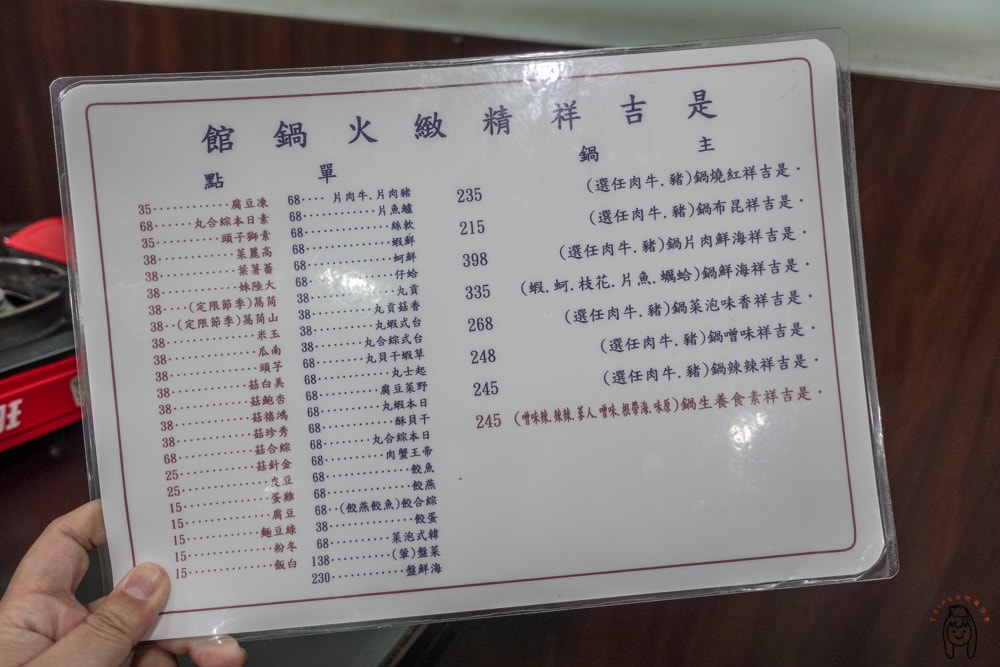 是吉祥精緻火鍋館
主鍋
・是吉祥紅燒鍋(豬.牛肉任選) 235
・是吉祥昆布鍋(豬.牛肉任選) 215
・是吉祥海鮮肉片鍋(豬.牛肉任選) 398
・是吉祥海鮮鍋(蛤蠣.魚片.花枝.蚵.蝦) 335
・是吉祥香味泡菜鍋(豬.牛肉任選) 268
・是吉祥味噌鍋(豬.牛肉任選) 248
・是吉祥辣辣鍋(豬.牛肉任選) 245
・是吉祥素食養生鍋(原味.海帶根.味噌.人蔘.辣辣.辣味噌) 245
單點
豬肉片.牛肉片····68
鱸魚片··········68
軟絲············68
鮮蝦············68
鮮蚵············68
蛤仔············68
貢丸············38
香菇貢丸········38
台式蝦丸········38
台式綜合丸······38
草蝦干貝丸······68
起士丸··········38
野菜豆腐········68
日本蝦丸········68
干貝酥··········68
日本綜合丸······68
帝王蟹肉········68
魚餃············68
燕餃············68
綜合餃(魚餃燕餃)··68
蛋餃············38
韓式泡菜········68
菜盤(葷)········138
海鮮盤··········230
凍豆腐··········35
素日本綜合丸····68
素獅子頭········35
高麗菜··········38
蕃薯葉··········38
大陸妹··········38
茼萵(季節限定)···38
山茼萵(季節限定)··38
玉米············38
南瓜············38
芋頭············38
美白菇··········38
杏鮑菇··········38
鴻禧菇··········38
秀珍菇··········38
綜合菇··········68
金針菇··········25
豆皮············25
雞蛋············15
豆腐············15
綠豆麵··········15
冬粉············15
白飯············15
旺